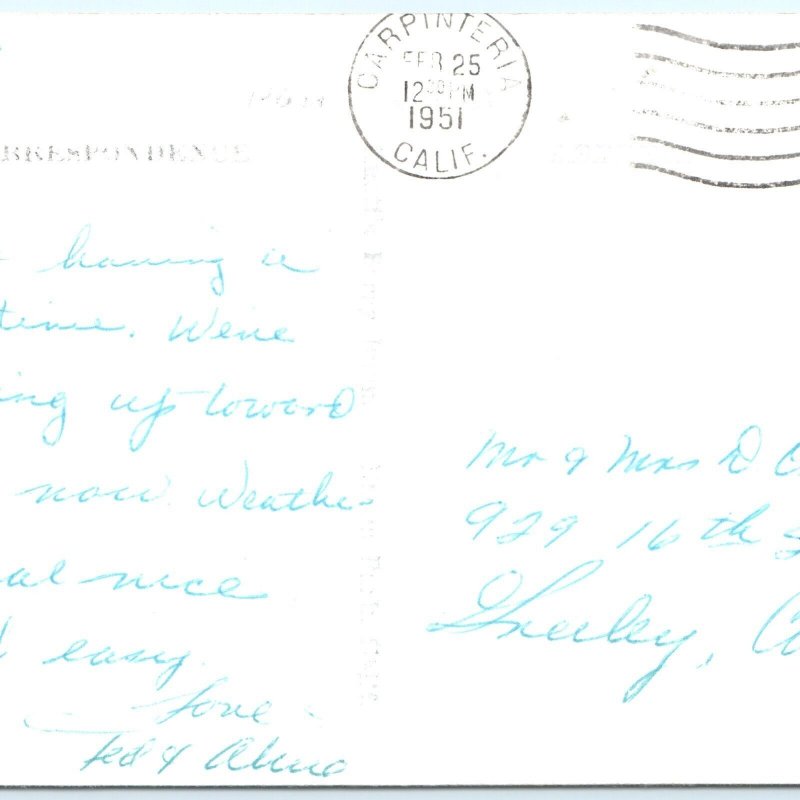 CARPINTERIA
FEB 25
12 30 PM
1951
CALIF.
RRESPONDENCE
having a
time. We're
ing up toward
now. Weather
al nice
easy.
Love -
Ted & Alma
Mr & Mrs D
929 16th S
Greeley, Co